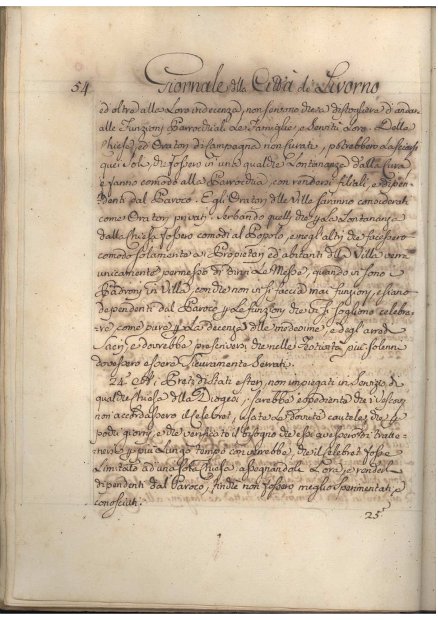 54 Giornale della Città di Livorno
ed oltre alla Loro indecenza, non servono che a distogliere d'andar
alle Funzioni Parrocchiali Le Famiglie, e Servitù Loro. Delle
Chiese, ed Oratorj di Campagna non Curati, potrebbero Lasciarsi
quei soli, che fossero in una qualche Lontananza dalla Cura
e fanno comodo alla Parrocchia, con renderli filiali, e dipen-
denti dal Paroco. E gli Oratorj delle Ville saranno considerati
come Oratorj privati, serbando quelli che p La Lontananza
dalla Chiesa fossero comodi al Popolo, e negl'altri che facessero
comodo solamente a i Proprietari ed abitanti della Villa verrà
unicamente permesso di dirvi Le Messe, quando vi sono i
Padroni in Villa, con che non vi si faccia mai funzioni, e siano
dependenti dal Paroco p Le funzioni che vi si sogliono celebra-
re, come pure p La decenza delle medesime, e degl'arredi
Sacri, e dovrebbe prescriversi che nelle Festività più solenni
dovessero essere sicuramente Serrati.
24. A i Preti di Stati esteri, non impiegati in Servizio di
qualche Chiesa della Diogesi, sarebbe espediente che i Vescovi
non accordassero il Celebret, usate Le dovute cautele, che p
pochi giorni, e che verificato il bisogno che essi avessero di tratte-
nersi p più Lungo tempo converrebbe, che il Celebret fosse
Limitato ad una sola Chiesa assegnandola Loro, e renderli
dipendenti dal Paroco, finchè non fossero meglio sperimentati, e
conosciuti.
25.